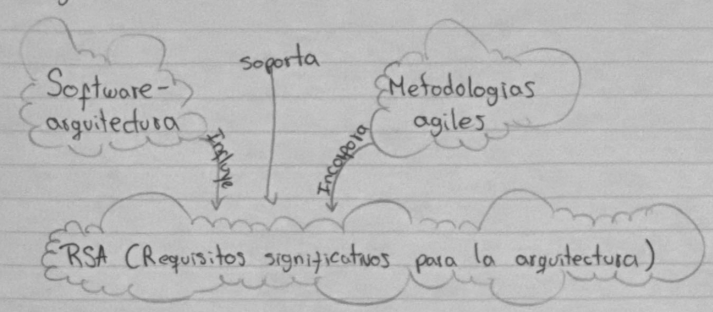 soporta
Software-
arquitectura
Metodologias
agiles
Incluye
Incorpora
RSA (Requisitos significativos para la arquitectura)